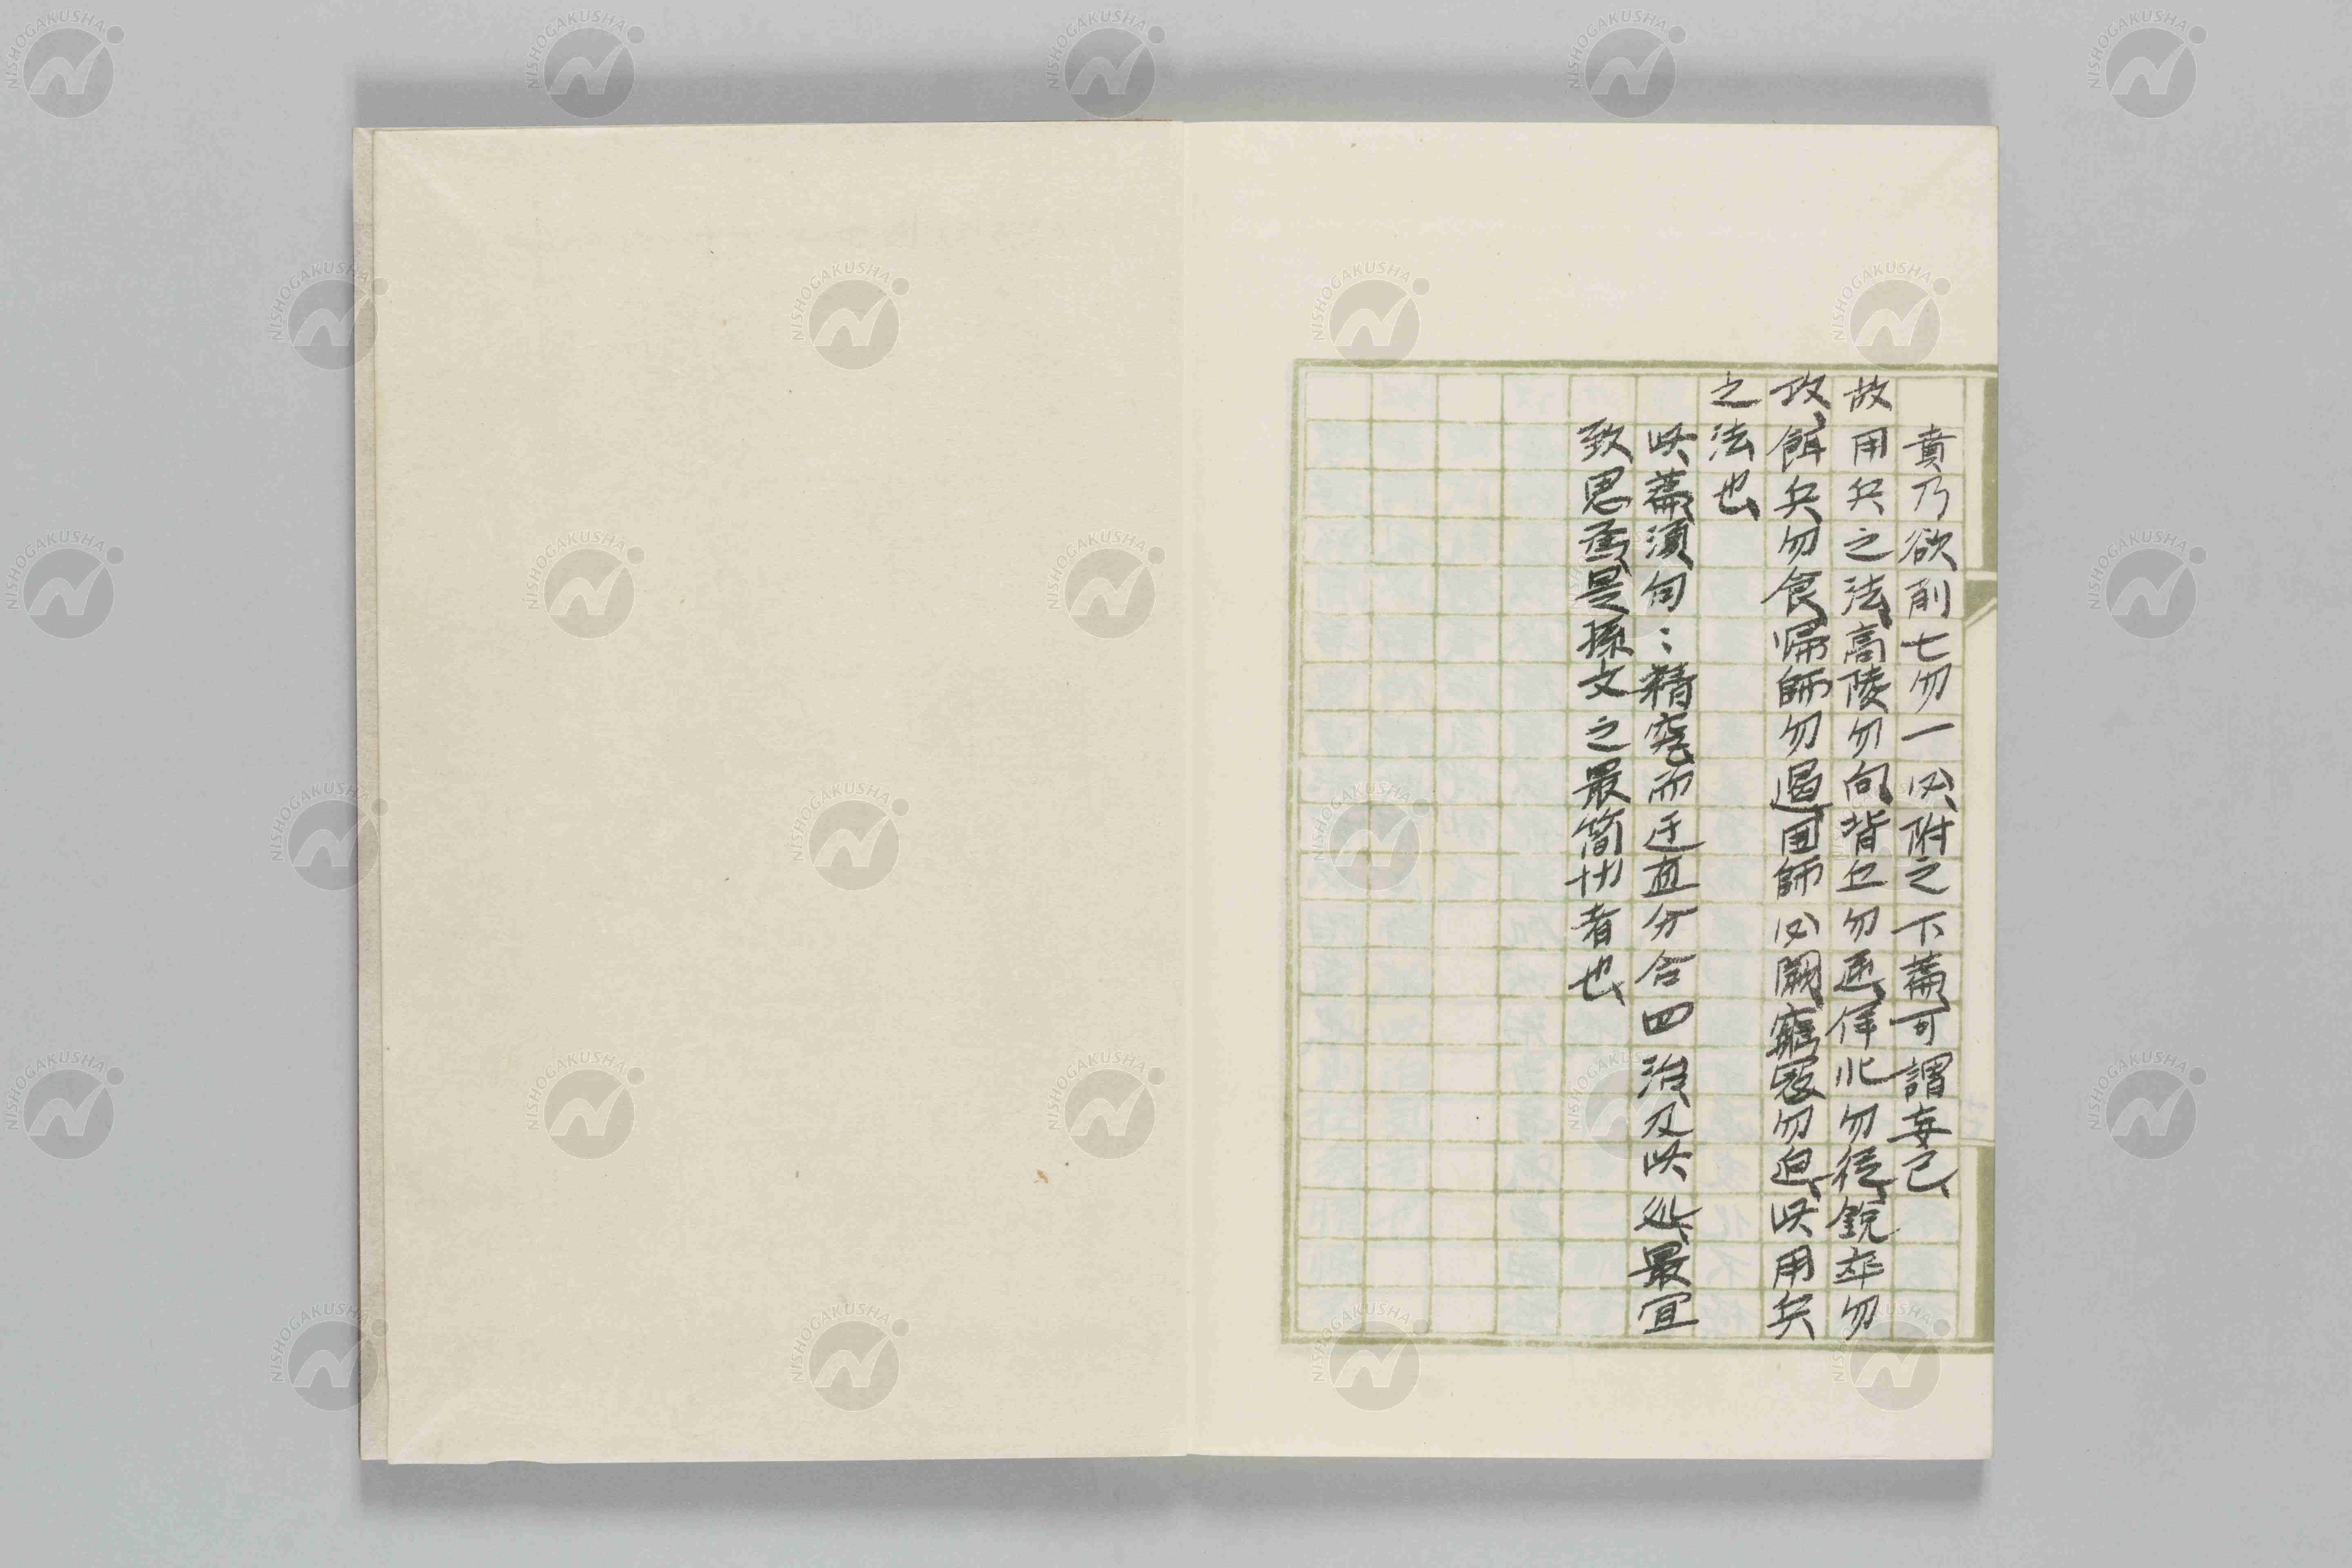 賁乃欲削七勿一必附之下篇可謂妄已
故用兵之法高陵勿向背丘勿逆佯北勿從銳卒勿
攻餌兵勿食帰師勿遏囲師必闕窮寇勿迫此用兵
之法也
此篇須句〻精究而迂直分合四治及此処最宜
致思焉是孫文之最簡切者也
NISHOGAKUSHA